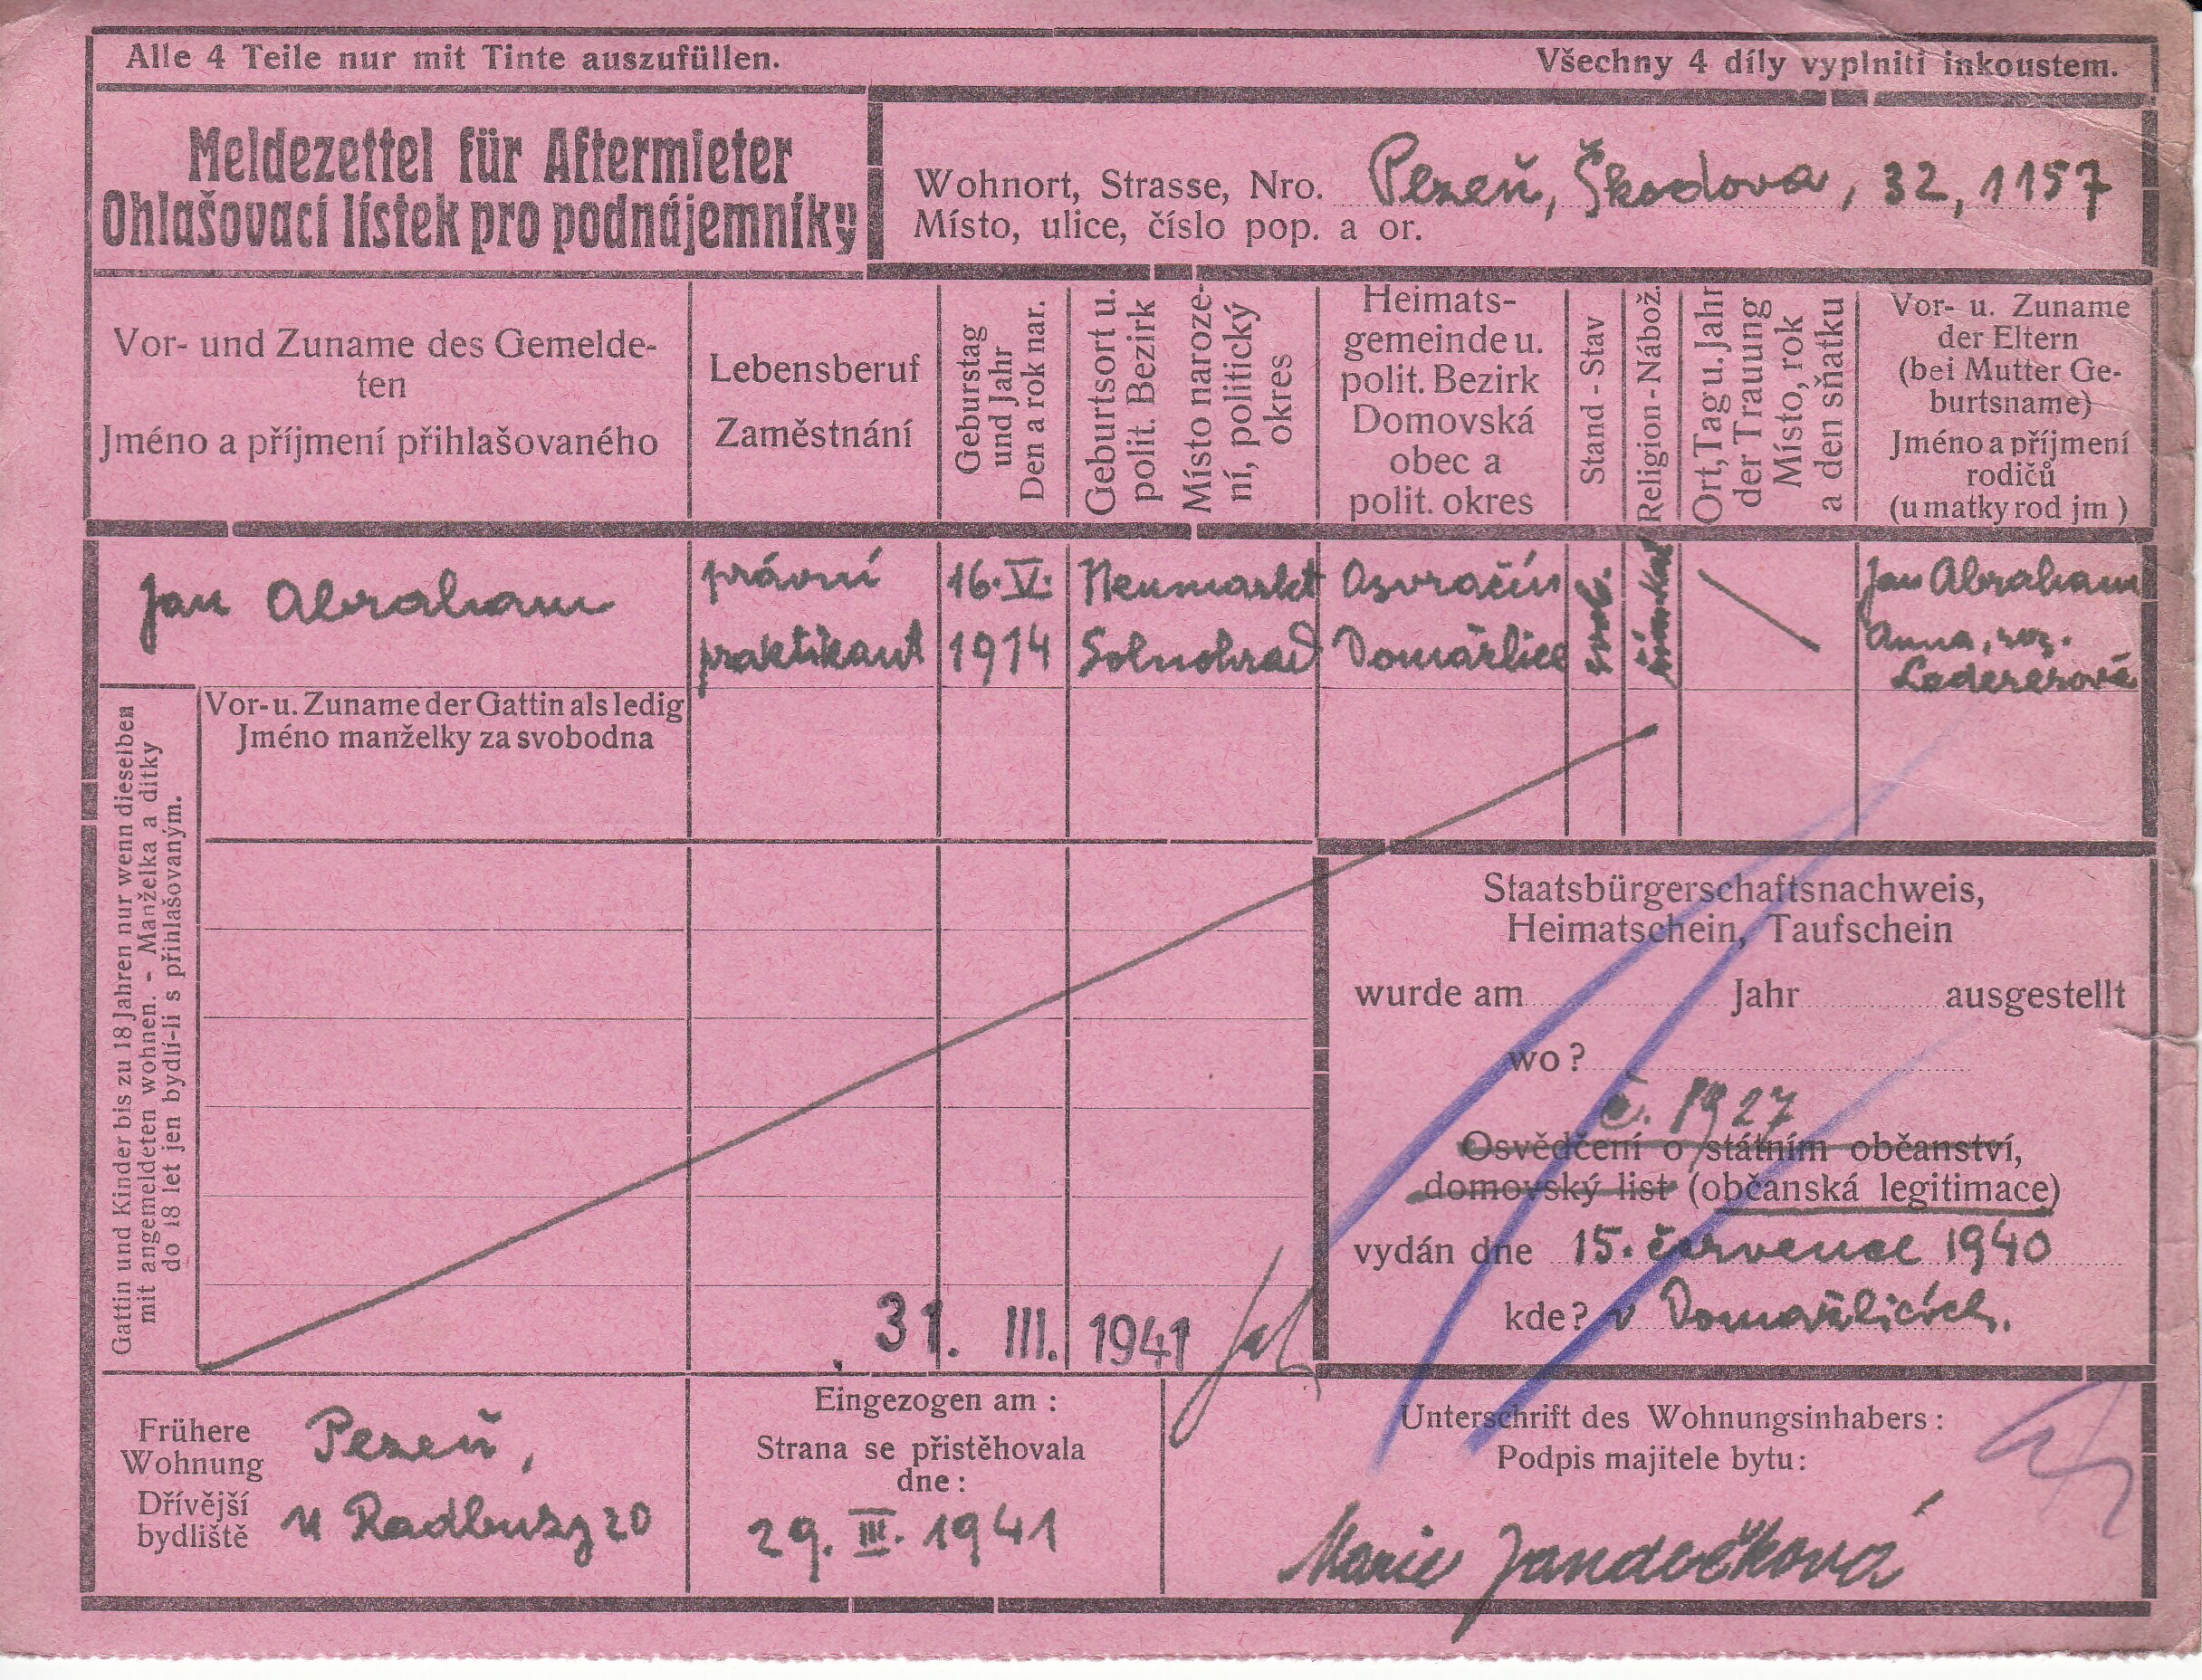 Alle 4 Teile nur mit Tinte auszufüllen.
Všechny 4 díly vyplniti inkoustem.
Meldezettel für Aftermieter
Ohlašovací lístek pro podnájemníky
Wohnort, Strasse, Nro. Plzeň, Škodova, 32, 1157
Místo, ulice, číslo pop. a or.
Vor- und Zuname des Gemelde-
ten
Jméno a příjmení přihlašovaného
Lebensberuf
Zaměstnání
Geburstag
und Jahr
Den a rok nar.
Geburtsort u.
polit. Bezirk
Místo naroze-
ní, politický
okres
Heimats-
gemeinde u.
polit. Bezirk
Domovská
obec a
polit. okres
Stand - Stav
Religion - Nábož.
Ort, Tag u. Jahr
der Trauung
Místo, rok
a den sňatku
Vor- u. Zuname
der Eltern
(bei Mutter Ge-
burtsname)
Jméno a příjmení
rodičů
(u matky rod jm )
Jan Abraham
právní
praktikant
16. V.
1914
Neumarkt
Solnohrad
Osvračín
Domažlice
svob.
římskokat
Jan Abraham
Anna, roz.
Ledererová
Vor- u. Zuname der Gattin als ledig
Jméno manželky za svobodna
Gattin und Kinder bis zu 18 Jahren nur wenn dieselben
mit angemeldeten wohnen. - Manželka a dítky
do 18 let jen bydlí-li s přihlašovaným.
Staatsbürgerschaftsnachweis,
Heimatschein, Taufschein
wurde am Jahr ausgestellt
wo?
č. 1927
Osvědčení o státním občanství,
domovský list (občanská legitimace)
vydán dne 15. července 1940
kde? v Domažlicích.
31. III. 1941
Frühere
Wohnung
Dřívější
bydliště
Plzeň,
u Radbuzy 20
Eingezogen am :
Strana se přistěhovala
dne :
29. III. 1941
Unterschrift des Wohnungsinhabers :
Podpis majitele bytu :
Marie Jandečková